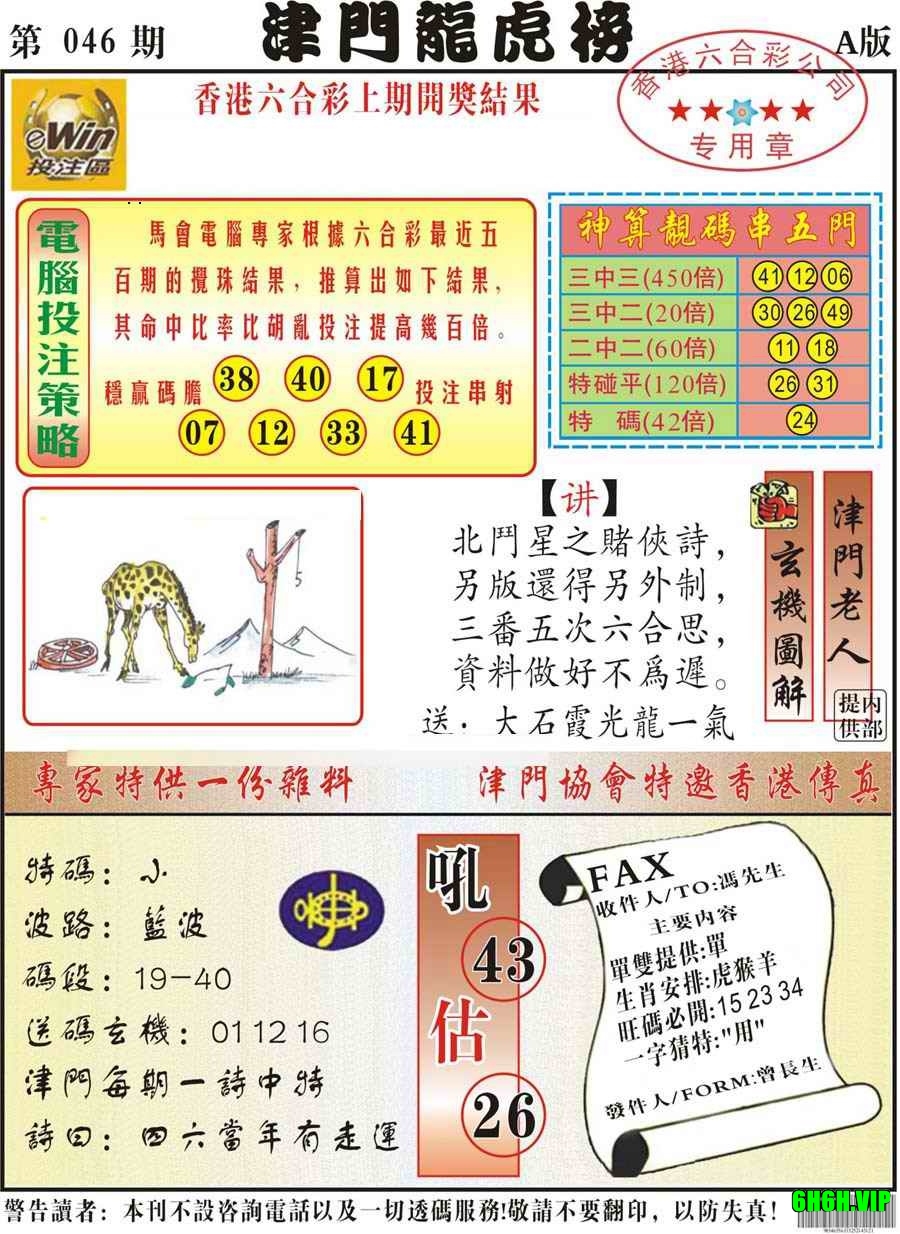 第 046 期
津門龍虎榜
A版
香港六合彩公司
专用章
eWin
投注區
香港六合彩上期開獎結果
電腦投注策略
馬會電腦專家根據六合彩最近五
百期的攪珠結果，推算出如下結果，
其命中比率比胡亂投注提高幾百倍。
穩贏碼膽 38 40 17 投注串射
07 12 33 41
神算靚碼串五門
三中三(450倍) 41 12 06
三中二(20倍) 30 26 49
二中二(60倍) 11 18
特碰平(120倍) 26 31
特 碼(42倍) 24
5
【讲】
北鬥星之賭俠詩，
另版還得另外制，
三番五次六合思，
資料做好不爲遲。
送：大石霞光龍一氣
玄機圖解
津門老人
内部提供
專家特供一份雜料
津門協會特邀香港傳真
特碼：小
波路：藍波
碼段：19-40
送碼玄機：01 12 16
津門每期一詩中特
詩曰：四六當年有走運
吼
43
估
26
FAX
收件人/TO:馮先生
主要内容
單雙提供:單
生肖安排:虎猴羊
旺碼必開:15 23 34
一字猜特:"用"
發件人/FORM:曾長生
警告讀者：本刊不設咨詢電話以及一切透碼服務!敬請不要翻印，以防失真!
6H6H.VIP